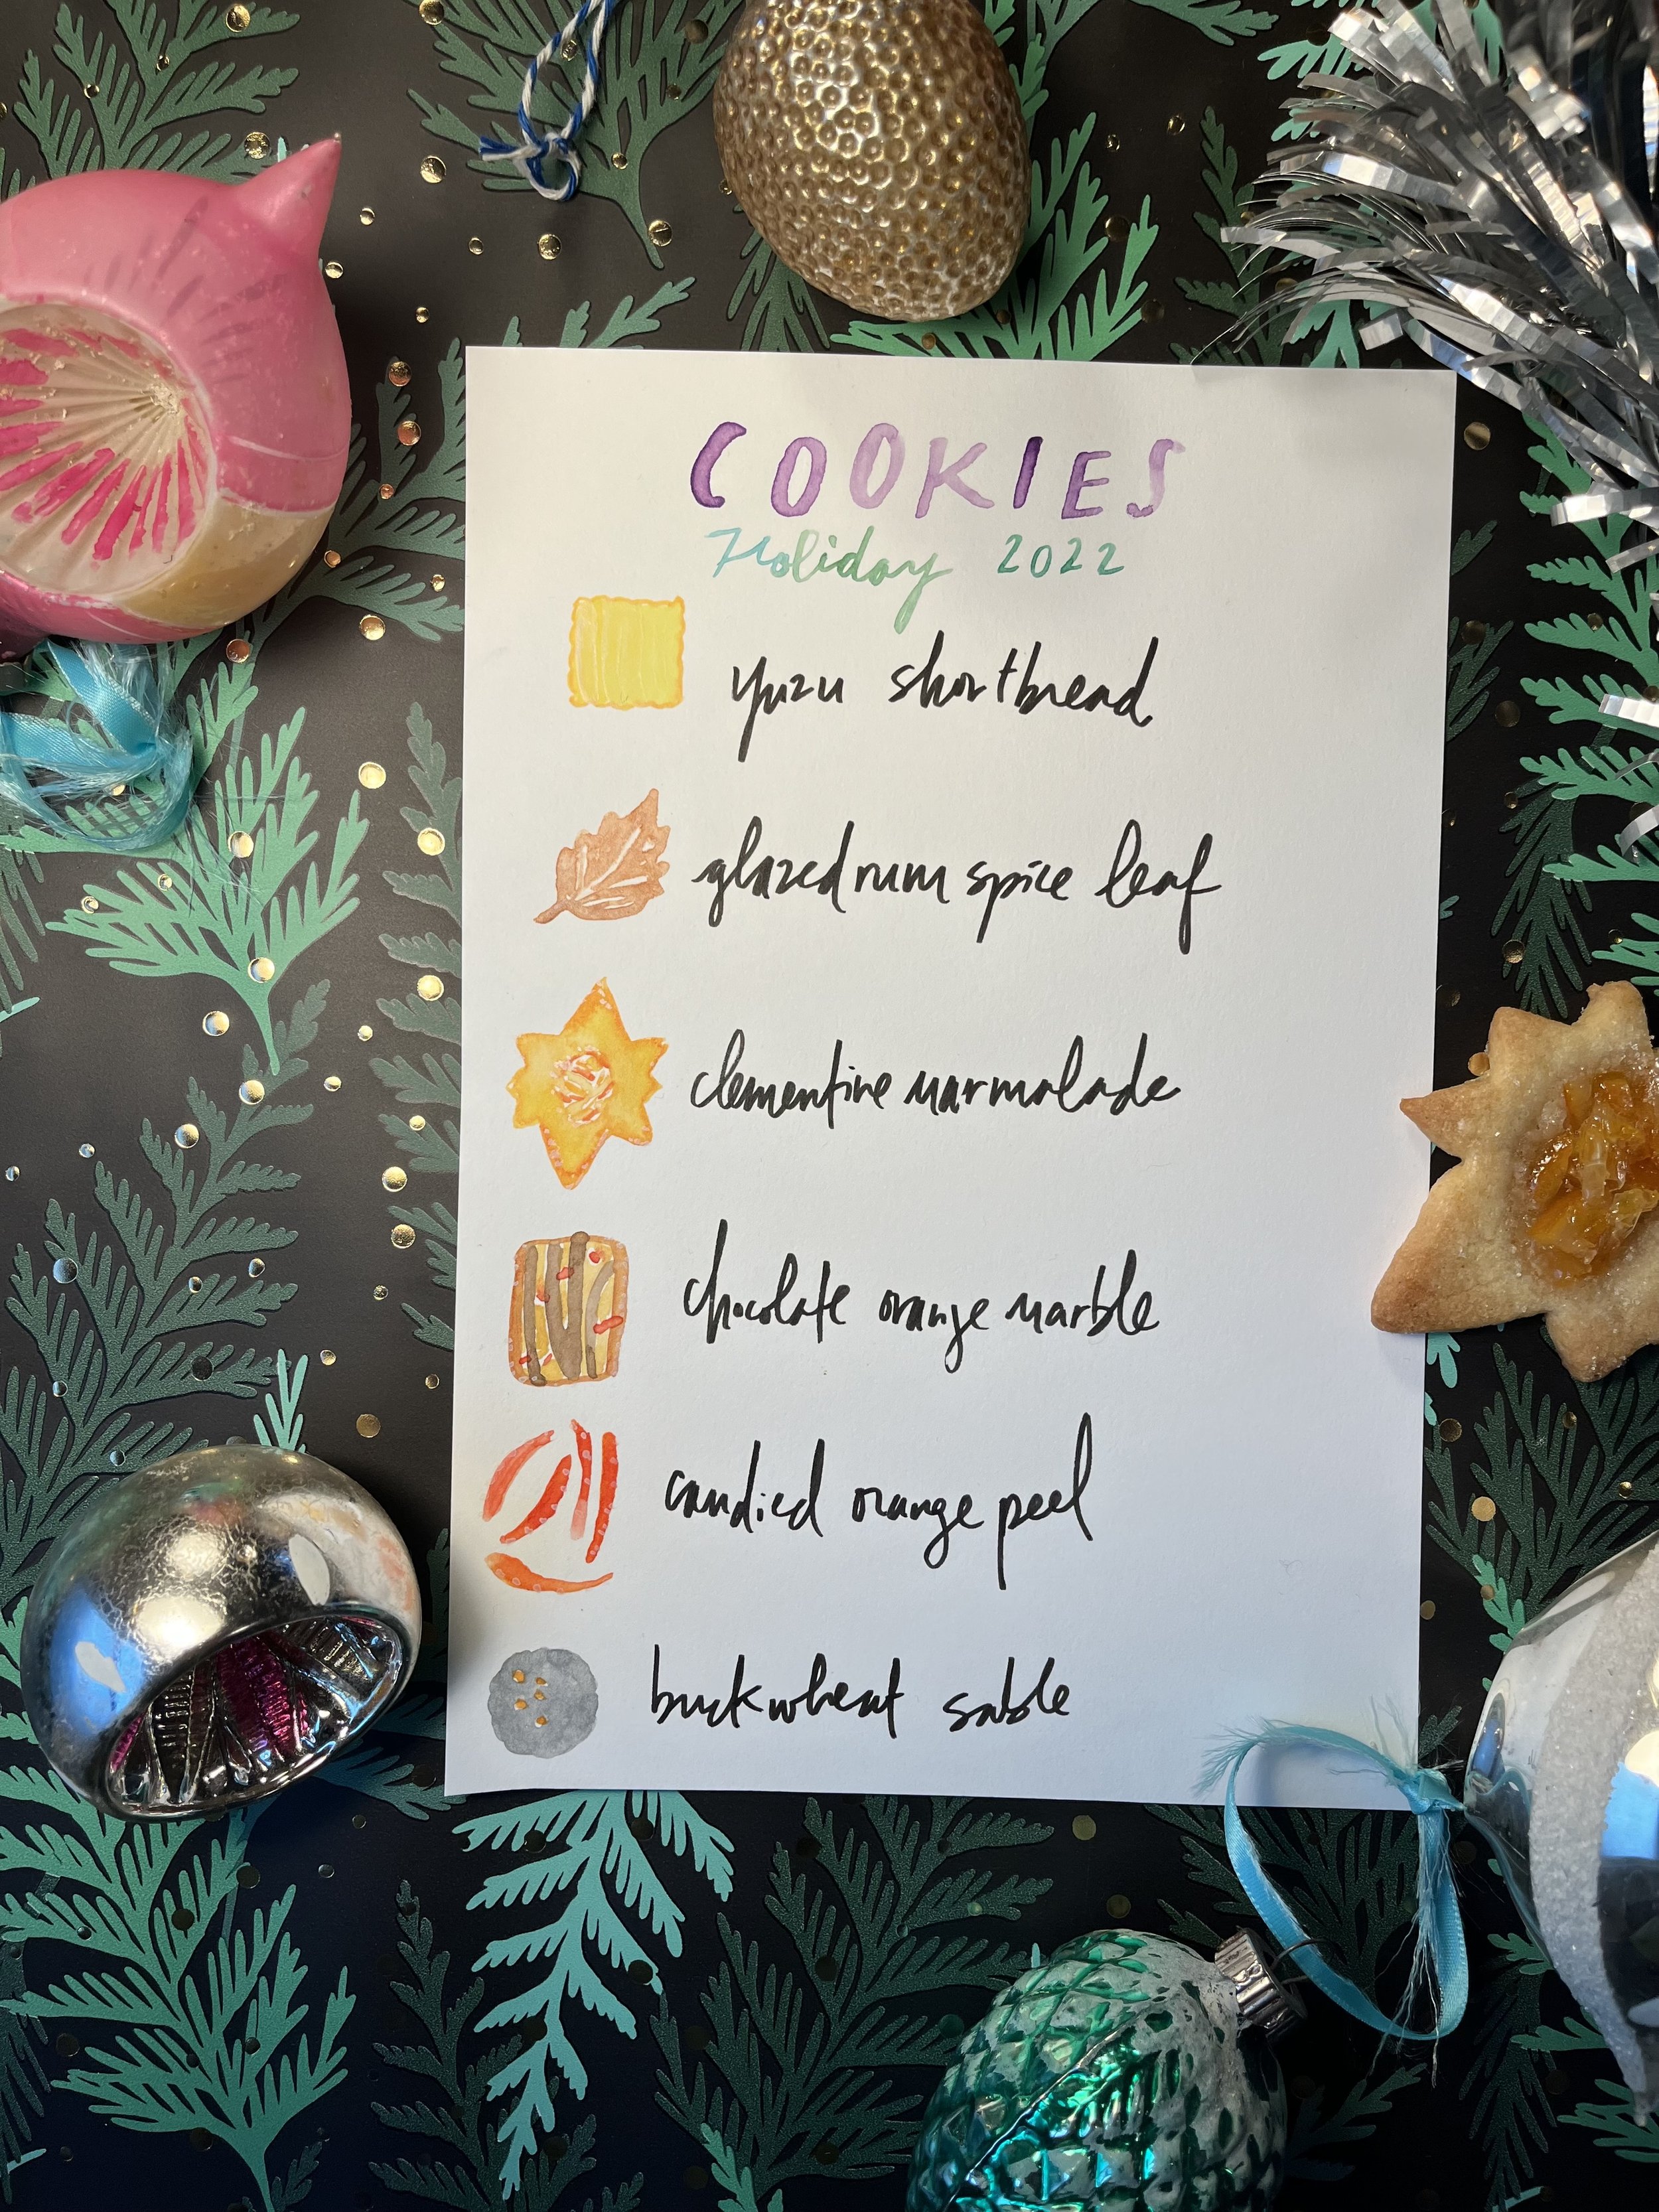 COOKIES
Holiday 2022
yuzu shortbread
glazed rum spice leaf
clementine marmalade
chocolate orange marble
candied orange peel
buckwheat sable